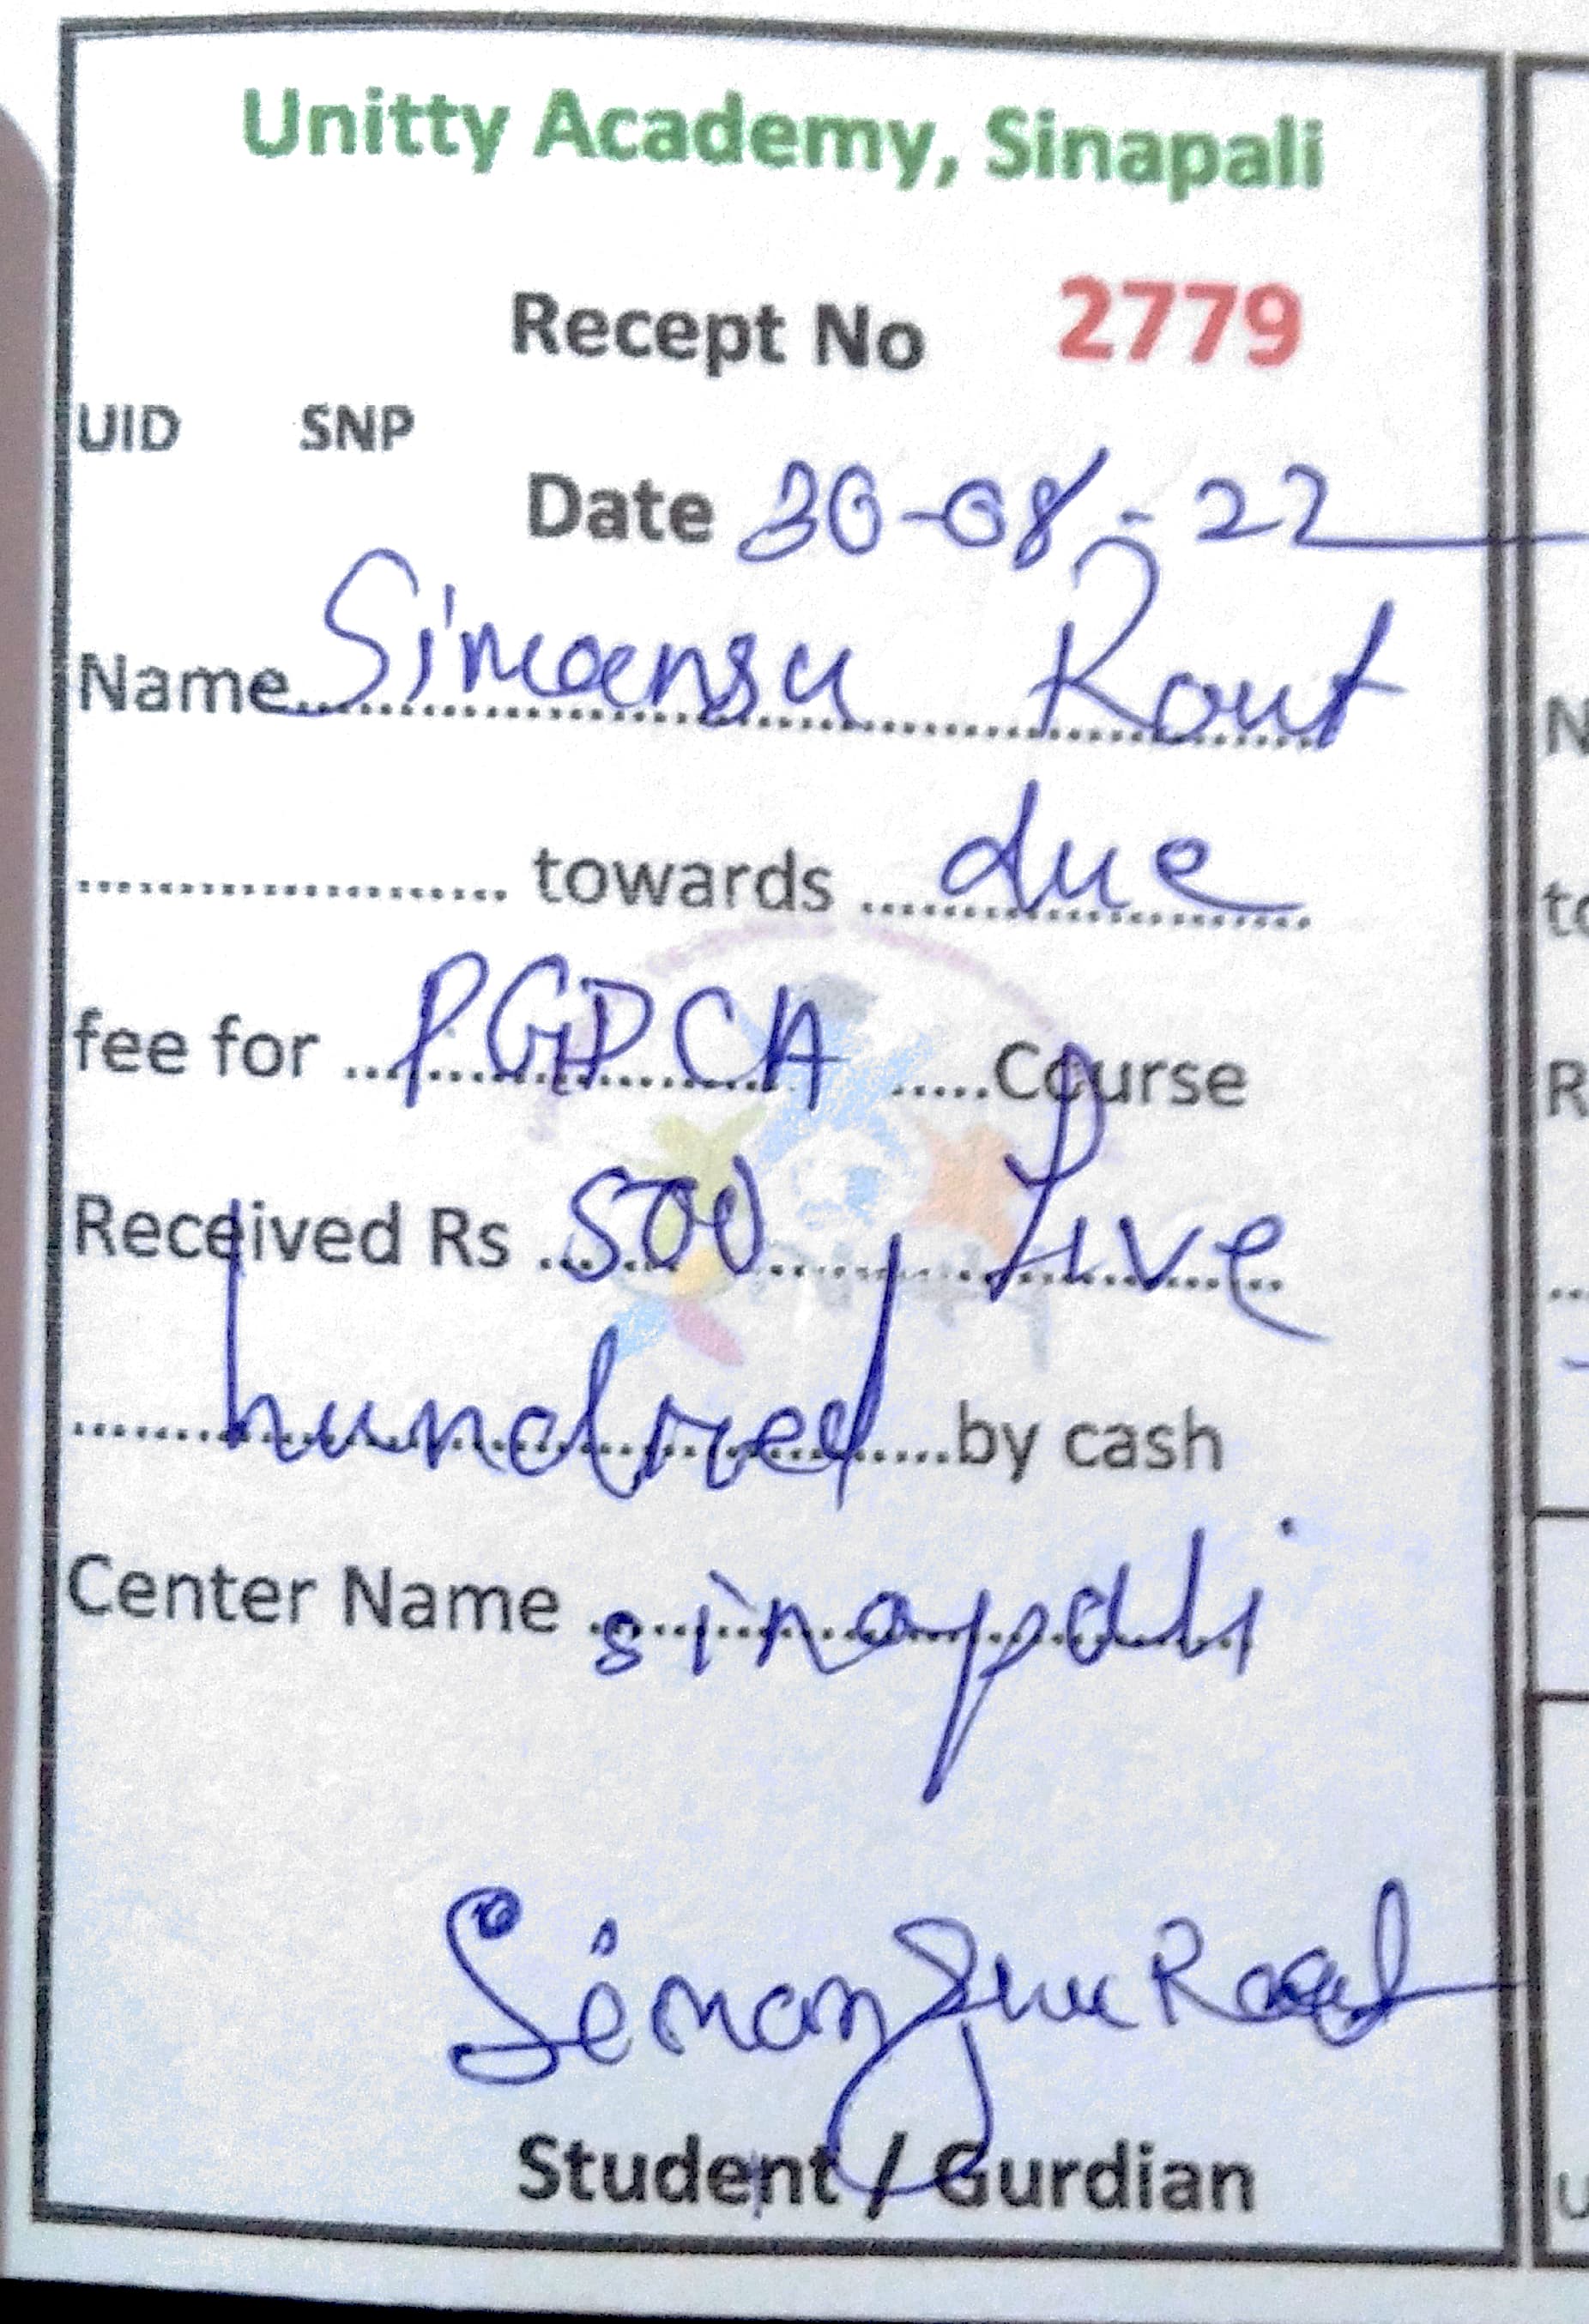 Unitty Academy, Sinapali
Recept No 2779
UID SNP
Date 30-08-22
Name Simansu Rout
towards due
fee for PGDCA Course
Received Rs 500, five
hundred by cash
Center Name sinapali
Simansu Rout
Student / Gurdian